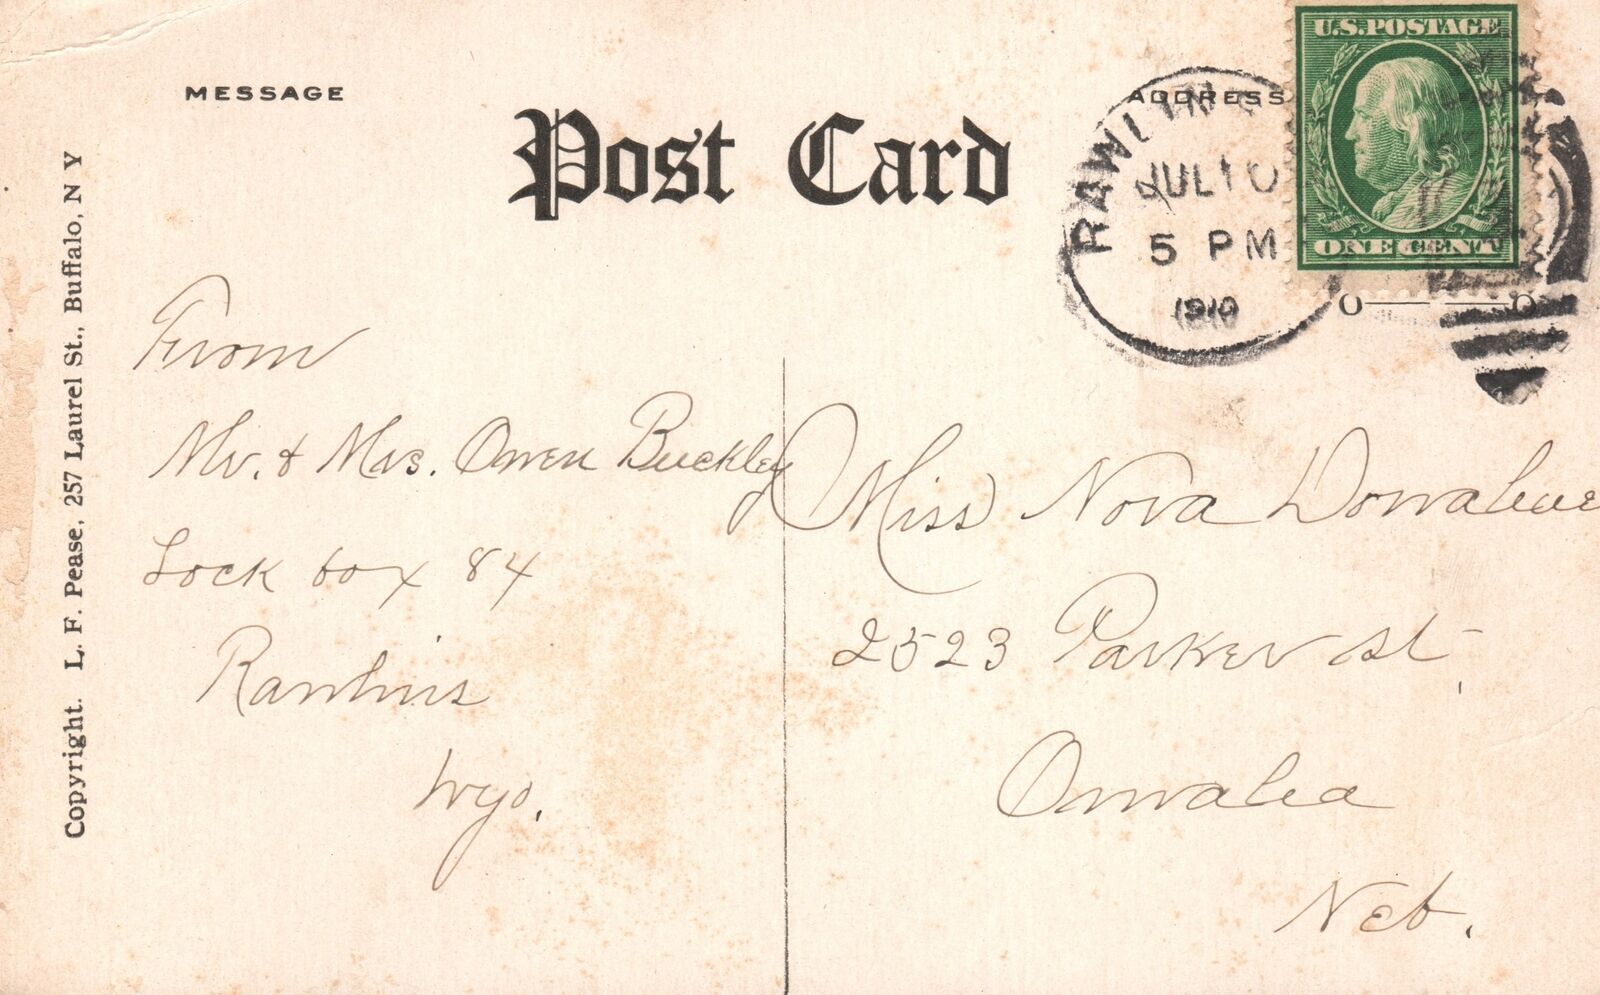 MESSAGE
Post Card
ADDRESS
RAWLINS
JUL 10
5 PM
1910
U.S. POSTAGE
ONE CENT
Copyright. L. F. Pease, 257 Laurel St., Buffalo, N Y
From
Mr. & Mrs. Owen Buckley
Lock box 84
Rawlins
Wyo.
Miss Nova Donahue
2523 Parker st.
Omaha
Neb.